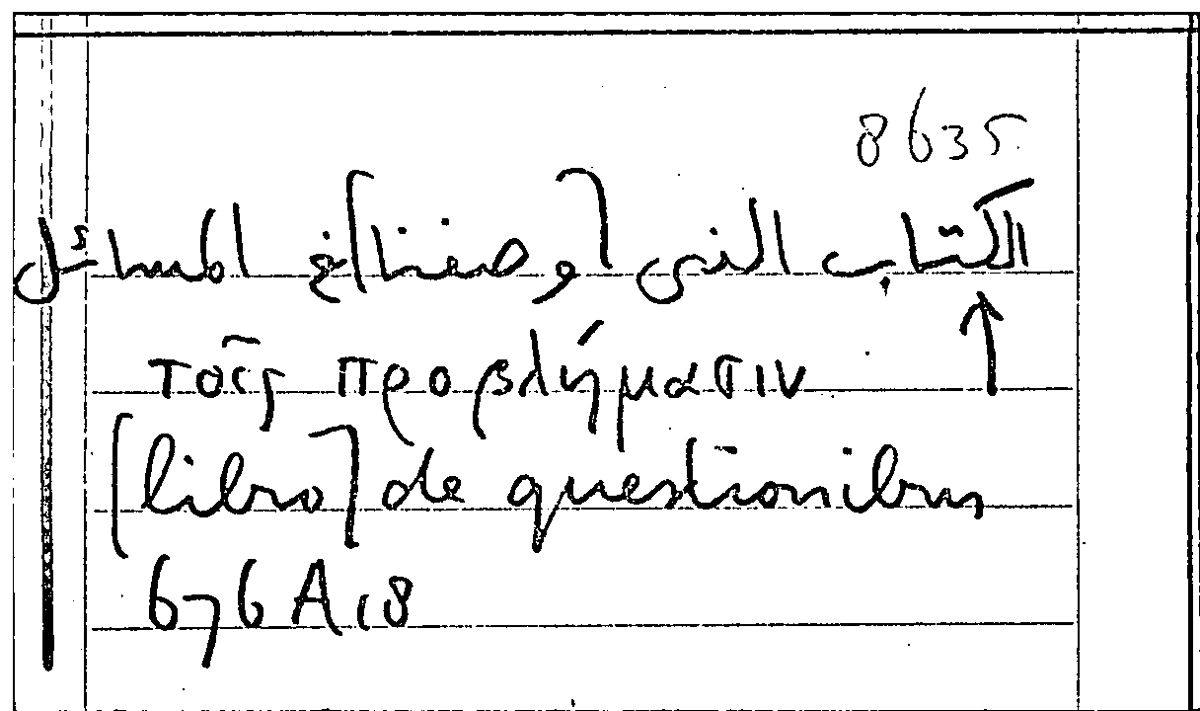 8635
الكتاب الذى [وصفنا] فى المسائل
↑
τοῖς προβλήμασιν
[libro] de questionibus
676 A 18